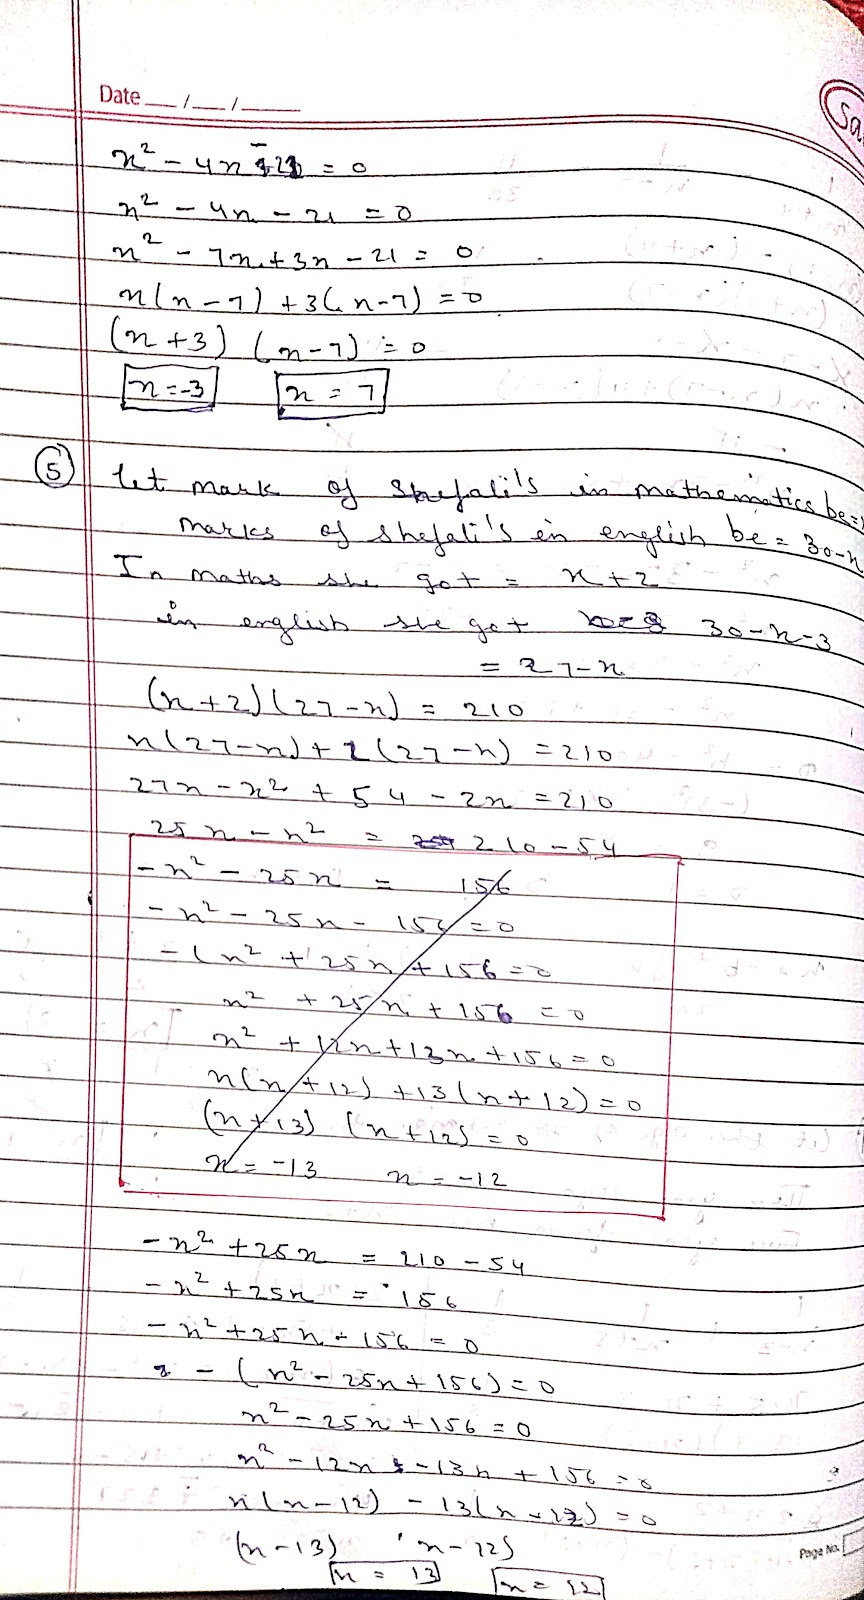 Date __/__/____
Sa
x² - 4x - 21 = 0
x² - 4x - 21 = 0
x² - 7x + 3x - 21 = 0
x(x-7) + 3(x-7) = 0
(x+3) (x-7) = 0
x = -3 x = 7
5 let mark of Shefali's in mathematics be = x
marks of shefali's in english be = 30-x
In maths she got = x+2
in english she got 30-x-3
= 27-x
(x+2)(27-x) = 210
x(27-x) + 2(27-x) = 210
27x - x² + 54 - 2x = 210
25x - x² = 210 - 54
-x² - 25x = 156
-x² - 25x - 156 = 0
-(x² + 25x + 156 = 0
x² + 25x + 156 = 0
x² + 12x + 13x + 156 = 0
x(x+12) + 13(x+12) = 0
(x+13) (x+12) = 0
x = -13 x = -12
-x² + 25x = 210 - 54
-x² + 25x = 156
-x² + 25x - 156 = 0
-(x² - 25x + 156) = 0
x² - 25x + 156 = 0
x² - 12x - 13x + 156 = 0
x(x-12) - 13(x-12) = 0
(x-13) (x-12)
x = 13 x = 12
Page No.